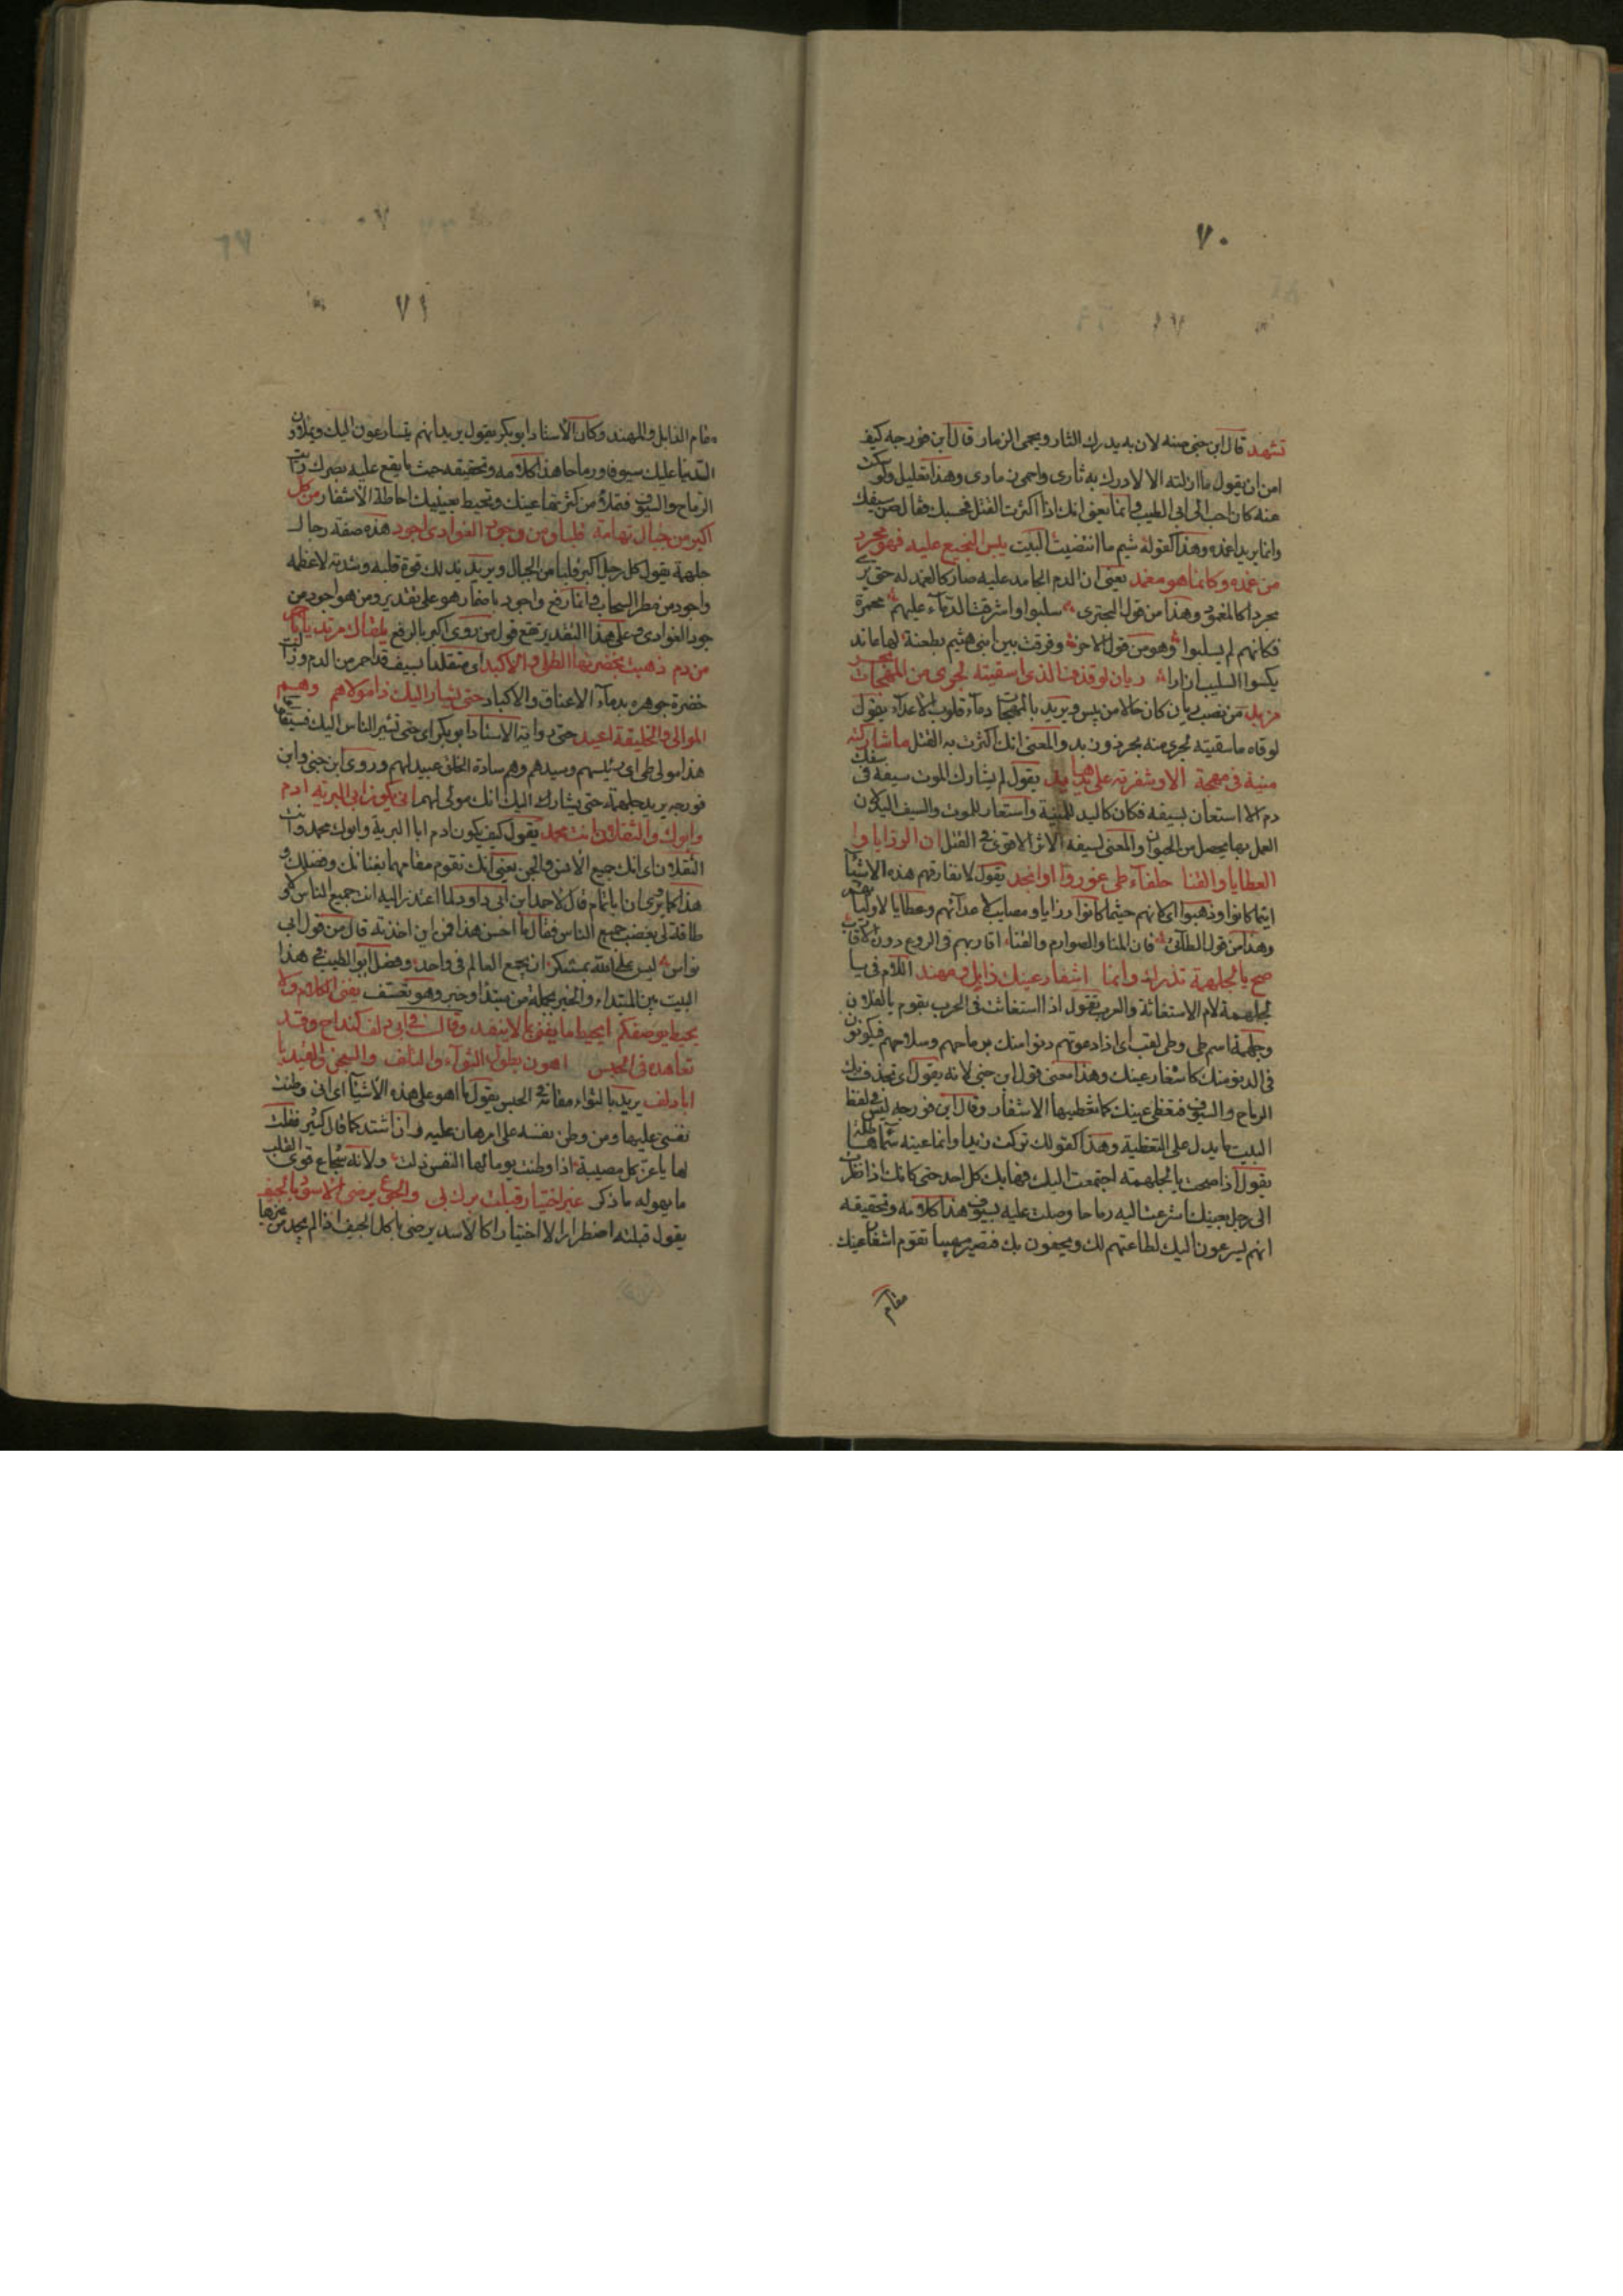 ٧٠
تشهد قال ابن جنى منه لان به يدرك الثار ويحمى الذمار قال ابن فورجه كيف
امن ان يقول ما ازلته الا لادرك به ثارى واحمى ذمارى وهذا تعليل ولو سكت
عنه كان احب الى ابى الطيب وانما يعنى انك اذا اكثرت القتل فحسبك فقال صن سيفك
وانما يريد اغمده وهذا كقوله شم ما انتضيت البيت يبس النجيع عليه فهو مجرد
من غمده وكانما هو مغمد يعنى ان الدم الجامد عليه صار كالغمد له حتى يرى
مجردا كالمغمود وهذا من قول البحترى سلبوا واشرقت الدماء عليهم محمرة
فكانهم لم يسلبوا وهو من قول الاخر وفرقت بين ابنى هشيم بطعنة لها عاند
يكسوا السليب ازارا ريان لو قذف الذى اسقيته لجرى من المهجات بحر
مزبد من نصب ريان كان حالا من يبس ويريد بالمهجات دماء قلوب الاعداء يقول
لو قاء ما سقيته لجرى منه بحر ذو زبد والمعنى انك اكثرت به القتل ما شاركته
منية فى مهجة الا وشفرته على يدها يد يقول لم يشارك الموت سيفه فى سفك
دم الا استعان بسيفه فكان كاليد للمنية واستعار للموت والسيف اليد لان
العمل بها يحصل من الحيوان والمعنى لسيفه الاثر الاقوى فى القتل ان الرزايا و
العطايا والقنا حلفاء طى غوروا او انجدوا يقول لا تفارقهم هذه الاشياء
اينما كانوا وذهبوا اى انهم حيثما كانوا رزايا ومصايب لاعدائهم وعطايا لاوليائهم
وهذا من قول الطائى فان المنايا والصوارم والقنا اقاربهم فى الروع دون الاقارب
صح يا لجلهمة تذرك وانما اشفار عينك ذابل ومهند اللام فى يا
لجلهمة لام الاستغاثة والعرب تقول اذا استغاثت فى الحرب بقوم يا لفلان
وجلهمة اسم طى وطى لقب اى اذا دعوتهم دنوا منك برماحهم وسلاحهم فيكونون
فى الدنو منك كاشفار عينك وهذا معنى قول ابن جنى لانه يقول اى تحدق بك
الرماح والسيوف فتغطى عينك كما تغطيها الاشفار وقال ابن فورجه ليس فى لفظ
البيت ما يدل على التغطية وهذا كقولك تركت زيدا وانما عينه سماء هاطلة
يقول اذا صحت يا لجلهمة اجتمعت اليك فهابك كل احد حتى كانك اذا نظرت
الى رجل بعينك اشرعت اليه رماحا وصلت عليه بسيوف هذا كلامه وتحقيقه
انهم يسرعون اليك لطاعتهم لك ويحفون بك فتصير مهيبا تقوم اشفار عينك
مقام
٧١
مقام الذابل والمهند وكان الاستاذ ابو بكر يقول يريد انهم يتسارعون اليك ويملاون
الدنيا عليك سيوفا ورماحا هذا كلامه وتحقيقه حيث ما يقع عليه بصرك رايت
الرماح والسيوف فتملا من كثرتها عينك وتحيط بعينيك احاطة الاشفار من كل
اكبر من جبال تهامة قلبا ومن جود الغوادى اجود هذه صفة رجال
جلهمة يقول كل رجل اكبر قلبا من الجبال ويريد بذلك قوة قلبه وشدته لاعظمه
واجود من مطر السحاب وانما رفع واجود باضمار هو على تقدير ومن هو اجود من
جود الغوادى وعلى هذا التقدير يقع قول من روى اكبر بالرفع يلقاك مرتديا باحمر
من دم ذهبت بخضرته الطلى والاكبد اى متقلدا بسيف قد احمر من الدم وزالت
خضرة جوهره بدماء الاعناق والاكباد حتى يشار اليك ذا مولاهم وهم
الموالى والخليقة اعبد حتى رواية الاستاذ ابو بكر اى حتى تشير الناس اليك
هذا مولى طى اى رئيسهم وسيدهم وهم سادة الخلق عبيد لهم وروى ابن جنى وابن
فورجه يريد جلهمة حتى يشار اليك انك مولى لهم انى يكون ابا البرية ادم
وابوك والثقلان انت محمد يقول كيف يكون ادم ابا البرية وابوك محمد وانت
الثقلان اى انك جميع الانس والجن يعنى انك تقوم مقامهما بغنائك وفضلك و
هذا كما يروى ان ابا تمام قال لاحمد ابن ابى داود لما اعتذر اليه انت جميع الناس ولا
طاقة لى بغضب جميع الناس فقال ما احسن هذا فمن اين اخذته قال من قول ابى
نواس ليس على الله بمستنكر ان يجمع العالم فى واحد وفصل ابو الطيب فى هذا
البيت بين المبتداء والخبر بجملة من مبتدا وخبر وهو تعسف يفنى الكلام ولا
يحيط بوصفكم ايحيط ما يفنى بما لا ينفد وقال فى ابى دلف كنداج وقد
تعاهده فى الحبس اهون بطول الثواء والتلف والسجن والقيد يا
ابا دلف يريد بالثواء مقامه فى الحبس يقول ما اهو على هذه الاشياء اى انى وطنت
نفسى عليها ومن وطن نفسه على امر هان عليه وان اشتد كما قال كثير فقلت
لها يا عز كل مصيبة اذا وطنت يوما لها النفس ذلت ولانه شجاع قوى القلب
ما يهوله ما ذكر غير اختيار قبلت برك بى والجوع يرضى الاسود بالجيف
يقول قبلته اضطرارا لا اختيارا كالاسد يرضى باكل الجيف اذا لم يجد غيرها